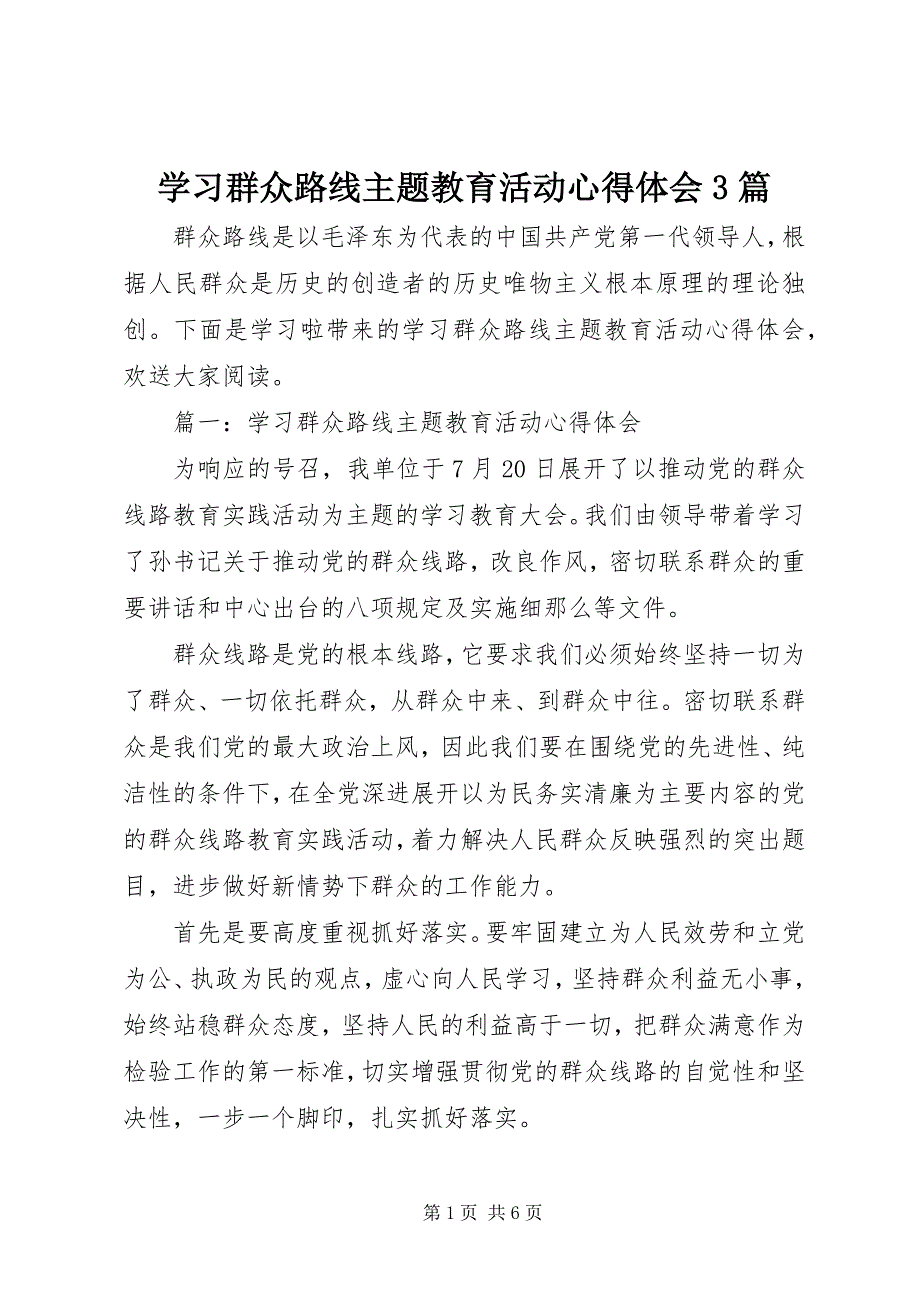 学习群众路线主题教育活动心得体会 3 篇
群众路线是以毛泽东为代表的中国共产党第一代领导人，根
据人民群众是历史的创造者的历史唯物主义根本原理的理论独
创。下面是学习啦带来的学习群众路线主题教育活动心得体会，
欢送大家阅读。
篇一：学习群众路线主题教育活动心得体会
为响应的号召，我单位于 7 月 20 日展开了以推动党的群众
线路教育实践活动为主题的学习教育大会。我们由领导带着学习
了孙书记关于推动党的群众线路，改良作风，密切联系群众的重
要讲话和中心出台的八项规定及实施细那么等文件。
群众线路是党的根本线路，它要求我们必须始终坚持一切为
了群众、一切依托群众，从群众中来、到群众中往。密切联系群
众是我们党的最大政治上风，因此我们要在围绕党的先进性、纯
洁性的条件下，在全党深进展开以为民务实清廉为主要内容的党
的群众线路教育实践活动，着力解决人民群众反映强烈的突出题
目，进步做好新情势下群众的工作能力。
首先是要高度重视抓好落实。要牢固建立为人民效劳和立党
为公、执政为民的观点，虚心向人民学习，坚持群众利益无小事，
始终站稳群众态度，坚持人民的利益高于一切，把群众满意作为
检验工作的第一标准，切实增强贯彻党的群众线路的自觉性和坚
决性，一步一个脚印，扎实抓好落实。
第 1 页 共 6 页